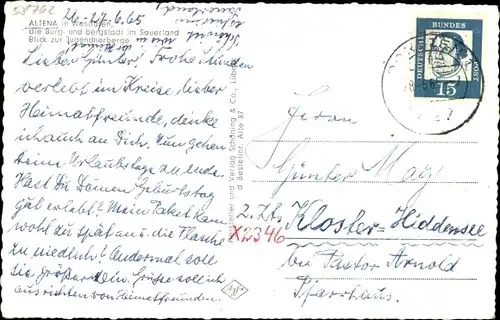 58762
ALTENA in Westfalen,
die Burg- und Bergstadt im Sauerland
Blick zur Jugendherberge
26.-27.6.65
Lieber Günter! Frohe Stunden
verlebt im Kreise lieber
Heimatfreunde, denke
ich auch an Dich. Nun gehen
Deine Urlaubstage zu Ende.
Hast Du Deinen Geburtstag
gut erlebt? Mein Paket kam
wohl zu spät an u. die Flasche
zu niedlich! Andermal soll
sie größer sein. Grüße soll ich
ausrichten von Heimatfreunden.
Verlag Schöning & Co., Lübeck
Bestellnr. Alte 87
DEUTSCHE BUNDESPOST
15
Herrn
Günter May
2. Zt. Kloster-Hiddensee
X2346
bei Pastor Arnold
Pfarrhaus.